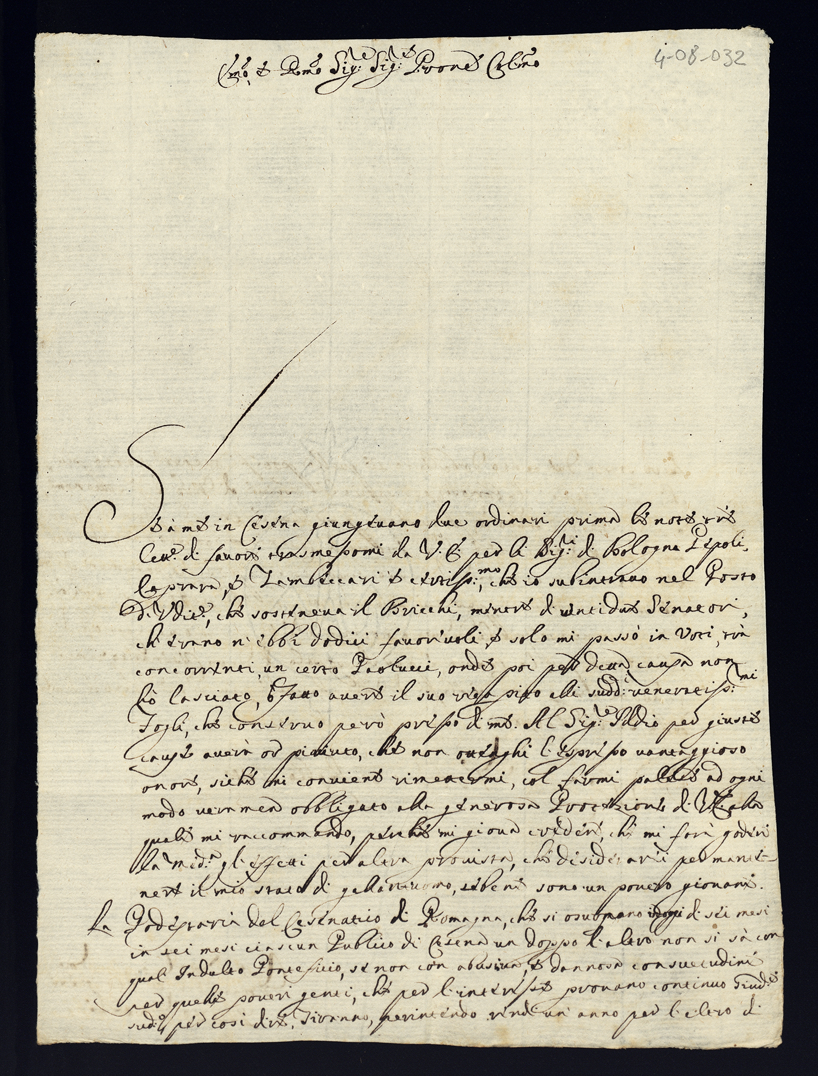 4-08-032
Emo, e Rmo Sig:re Sig:re Prone Colmo
Se à me in Cesena giungevano due ordinari prima le note
di favore da V. E. per li Sig:ri di Bologna Pepoli,
e Zambeccari che io subintravo nel Posto
d'Udit.e, che sosteneva il Bricchi, mentre di ventidue Senatori,
ch'erano n'ebbi dodici favorevoli, e solo mi passò in voti, trà
concorrenti, un certo Paolucci, onde poi per detta causa non
hò lasciato, avere il suo ricapito alli sudd:i veneratiss:mi
fogli, che conservo però presso di me. Al Sig:re Iddio per giuste
cause averà or piaciuto, che non ottenghi l'espresso vantaggioso
onore, siche mi conviene col farmi palese ad ogni
modo obbligato alla generosa Protezione di V.E. alla
quale mi raccommando, perche mi giova credere, che mi farà godere
la med:a gl'effetti per altra provista, che desiderarei per mante-
nere il mio stato di galantuomo, sebene sono un povero giovane.
La Podestaria del Cesenatico di Romagna, che si osservano di sei mesi
in sei mesi ciascun Publico di Cesena un doppo l'altro non si sà con
qual Indulto Pontificio, se non con abusiva, e dannosa consuetudine
per quelle povere genti, che per l'interesse provano continuo
sud:o, per così dire, Tiranno, un anno per l'altro di